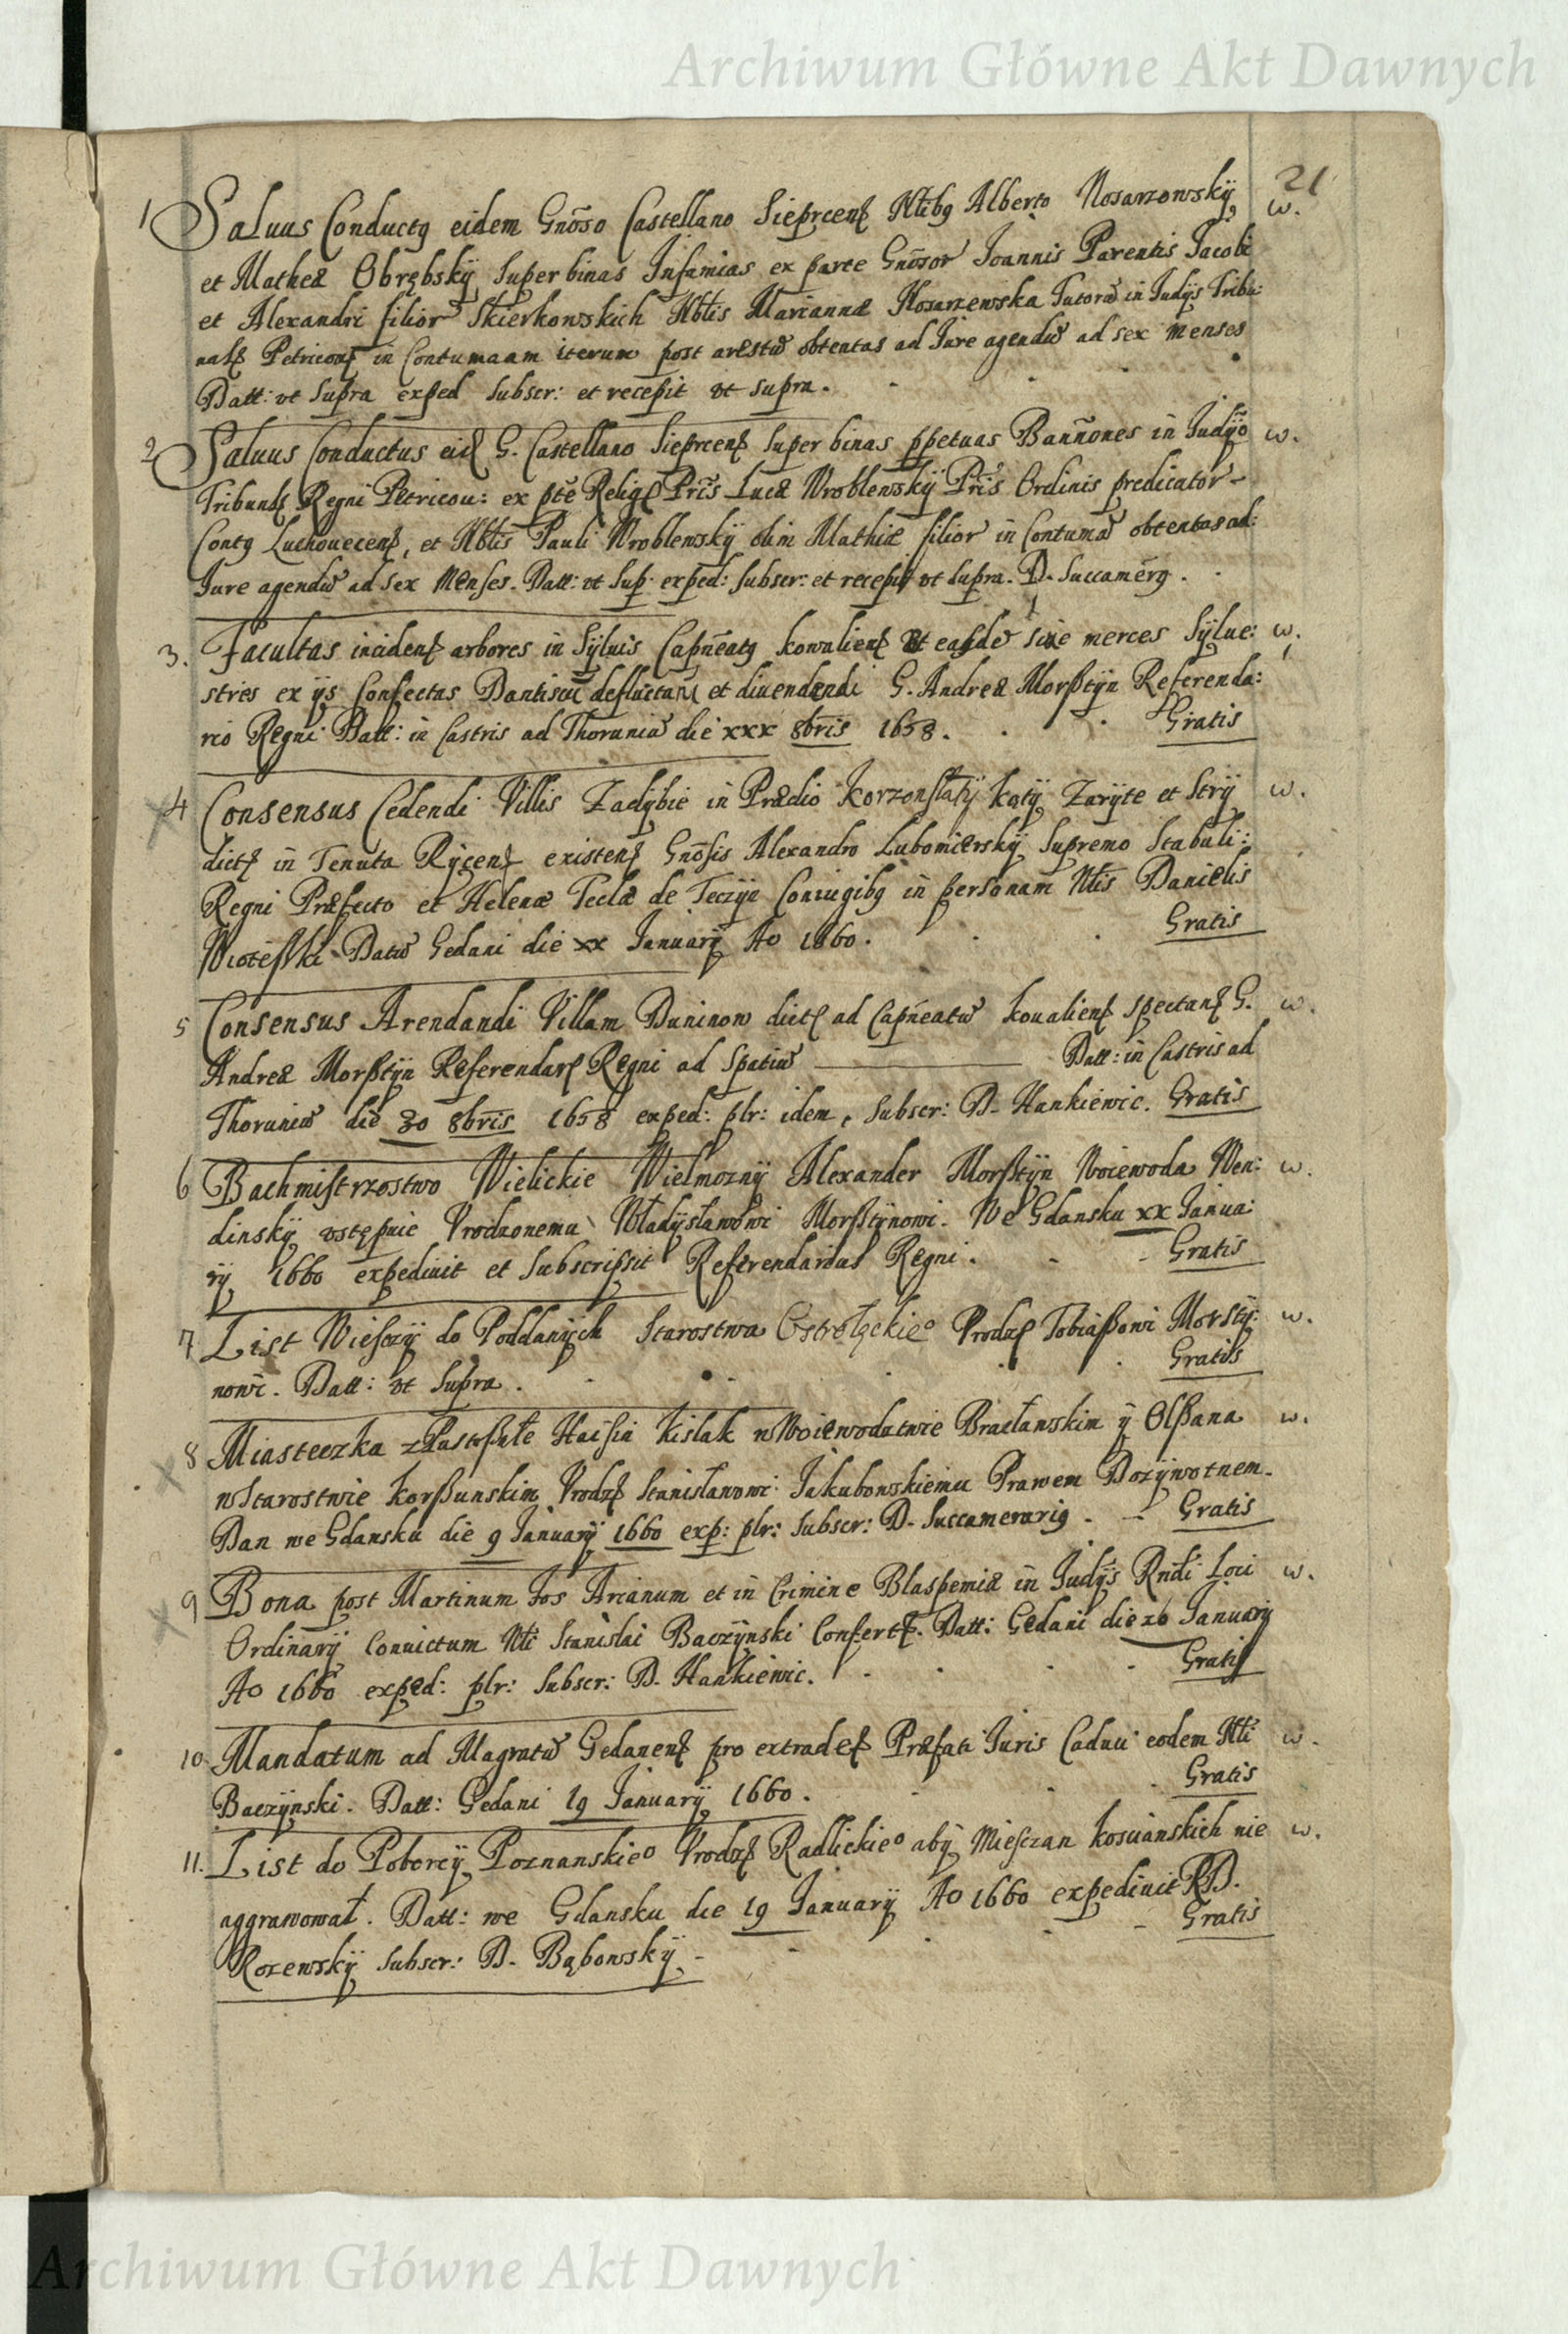 Archiwum Główne Akt Dawnych
21
1 Saluus Conductq eidem Gnõso Castellano Sieprcens Nłibq Alberto Nosarzowskÿ w.
et Matheæ Obrębskÿ super binas Infamias ex parte Gnõsor Joannis Parentis Jacobi
et Alexandri filior Skierkowskich Nbtis Mariannæ Nosarzewska Tutorũ in Judÿs Tribu:
nals Petricons in Contumaam iterum post arestũ obtentas ad Jure agendũ ad sex menses
Datt: vt supra exped subscr: et recepit vt supra.
2 Saluus Conductus eid G. Castellano Sieprcens super binas ppetuas Bannões in Judÿo w.
Tribunls Regni Petricou: ex pte Religs Pris Lucæ Wroblewskÿ Pris Ordinis predicator
Contq Luchouecens, et Nbtis Pauli Wroblewskÿ olim Mathiæ filior in Contumã obtentas ad:
Jure agendũ ad sex Menses. Datt: vt sup. exped: subscr: et recepit vt supra. D. Succamerq.
3. Facultas incidens arbores in Sÿluis Capneatq kowaliens et easdẽ siue merces Sÿlue: w.
stres ex ijs Confectas Dantiscũ defluctari et diuendendi G. Andreæ Morsztÿn Referenda:
rio Regni Datt: in Castris ad Thoruniũ die xxx 8bris 1658. Gratis
4 Consensus Cedendi Villis Zadÿbie in Prædio Korzonstatÿ Kątÿ Zarÿte et Strÿ w.
dicts in Tenuta Rÿcens existens Gnõsis Alexandro Lubomierskÿ Supremo Stabuli:
Regni Præfecto et Helenæ Teclæ de Teczÿn Coniugibq in personam Nłis Danielis
Wioteski Datũ Gedani die xx Januarÿ Ao 1660. Gratis
5 Consensus Arendandi Villam Duninow dicts ad Capneatũ koualiens spectans G. w.
Andreæ Morsztÿn Referendars Regni ad Spatiũ Datt: in Castris ad
Thoruniũ die 30 8bris 1658 exped: plr: idem, subscr: D. Hankiewic. Gratis
6 Bachmistrzostwo Wielickie Wielmoznÿ Alexander Morsztÿn Woiewoda Wen: w.
dinskÿ vstępuie Vrodzonemu Władÿsławowi Morsztÿnowi. We Gdansku xx Janua:
rÿ 1660 expediuit et Subscripsit Referendarius Regni. Gratis
7 List Wiesczÿ do Poddanÿch Starostwa Ostrołęckieo Vrodzs Tobiaszowi Morstÿ: w.
nowi. Datt: vt supra. Gratis
8 Miasteczka zPustoszałe Haisin Kislak w Woiewodztwie Bracławskim ÿ Olszana w.
w Starostwie Korszunskim Vrodzs Stanisławowi Jakubowskiemu Prawem Dozÿwotnem.
Dan we Gdansku die 9 Januarÿ 1660 exp: plr: subscr: D. Succamerariq. Gratis
9 Bona post Martinum Jos Arianum et in Crimine Blaspemiæ in Judÿs Rndi Loci w.
Ordinarÿ Conuictum Nłi Stanislai Baczÿnski Conferts. Datt: Gedani die 26 Januarÿ
Ao 1660 exped: plr: subscr: D. Hankiewic. Gratis
10 Mandatum ad Magratũ Gedanens pro extrades Præfati Juris Caduci eodem Nłi w.
Baczÿnski. Datt: Gedani 19 Januarÿ 1660. Gratis
11. List do Poborcÿ Poznanskieo Vrodzs Radlickieo abÿ Miesczan kosuianskich nie w.
aggrawował. Datt: we Gdansku die 19 Januarÿ Ao 1660 expediuit RD.
Rozewskÿ subscr: D. Bąbowskÿ. Gratis
Archiwum Główne Akt Dawnych